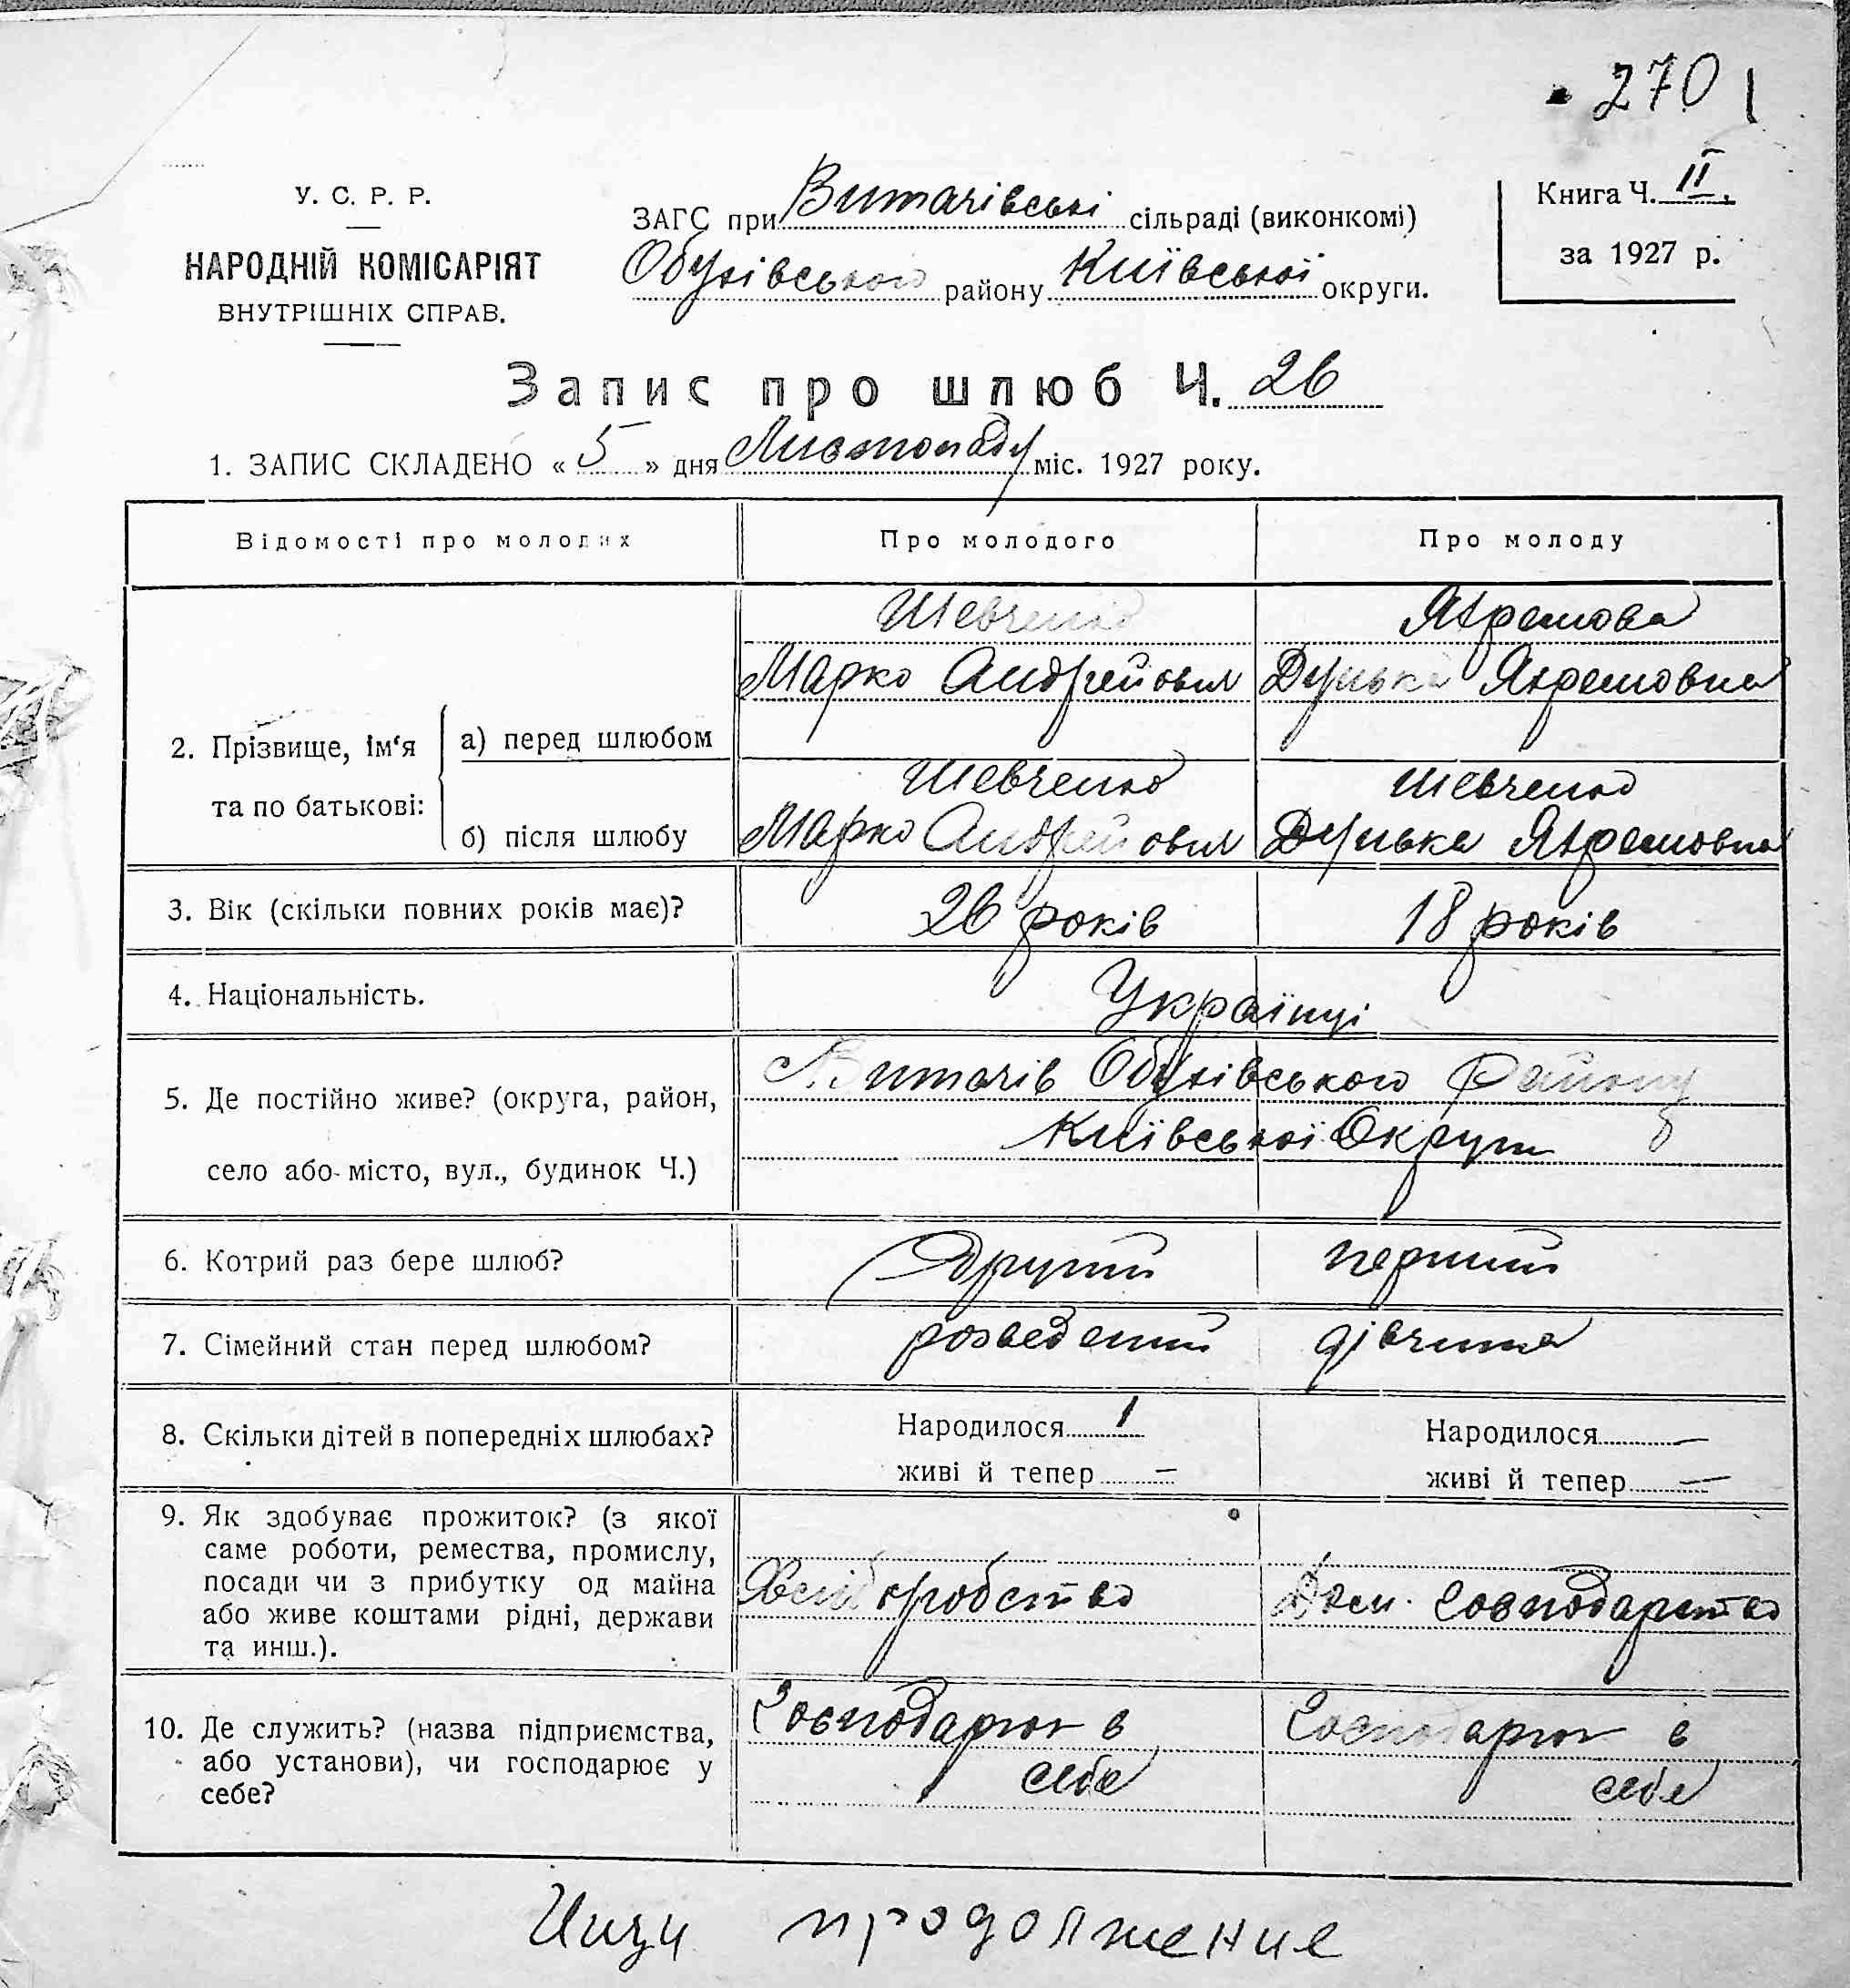 270
У. С. Р. Р.
НАРОДНІЙ КОМІСАРІЯТ
ВНУТРІШНІХ СПРАВ.
ЗАГС при Витачівські сільраді (виконкомі)
Обухівського району Київської округи.
Книга Ч. II.
за 1927 р.
Запис про шлюб Ч. 26
1. ЗАПИС СКЛАДЕНО « 5 » дня Листопаду міс. 1927 року.
Відомості про молодих Про молодого Про молоду
2. Прізвище, ім‘я та по батькові:
а) перед шлюбом
Шевченко
Марко Андрейович
Яхремова
Дунька Яхремовна
б) після шлюбу
Шевченко
Марко Андрейович
Шевченко
Дунька Яхремовна
3. Вік (скільки повних років має)? 26 років 18 років
4. Національність. Українці
5. Де постійно живе? (округа, район,
село або місто, вул., будинок Ч.)
с. Витачів Обухівського Району
Київської Округи
6. Котрий раз бере шлюб? Другий перший
7. Сімейний стан перед шлюбом? розведений дівчина
8. Скільки дітей в попередніх шлюбах?
Народилося 1
живі й тепер —
Народилося —
живі й тепер —
9. Як здобуває прожиток? (з якої
саме роботи, ремества, промислу,
посади чи з прибутку од майна
або живе коштами рідні, держави
та инш.).
Хліборобство
Дом. Господарство
10. Де служить? (назва підприємства,
або установи), чи господарює у
себе?
Господарює в
себе
Господарює в
себе
продолжение